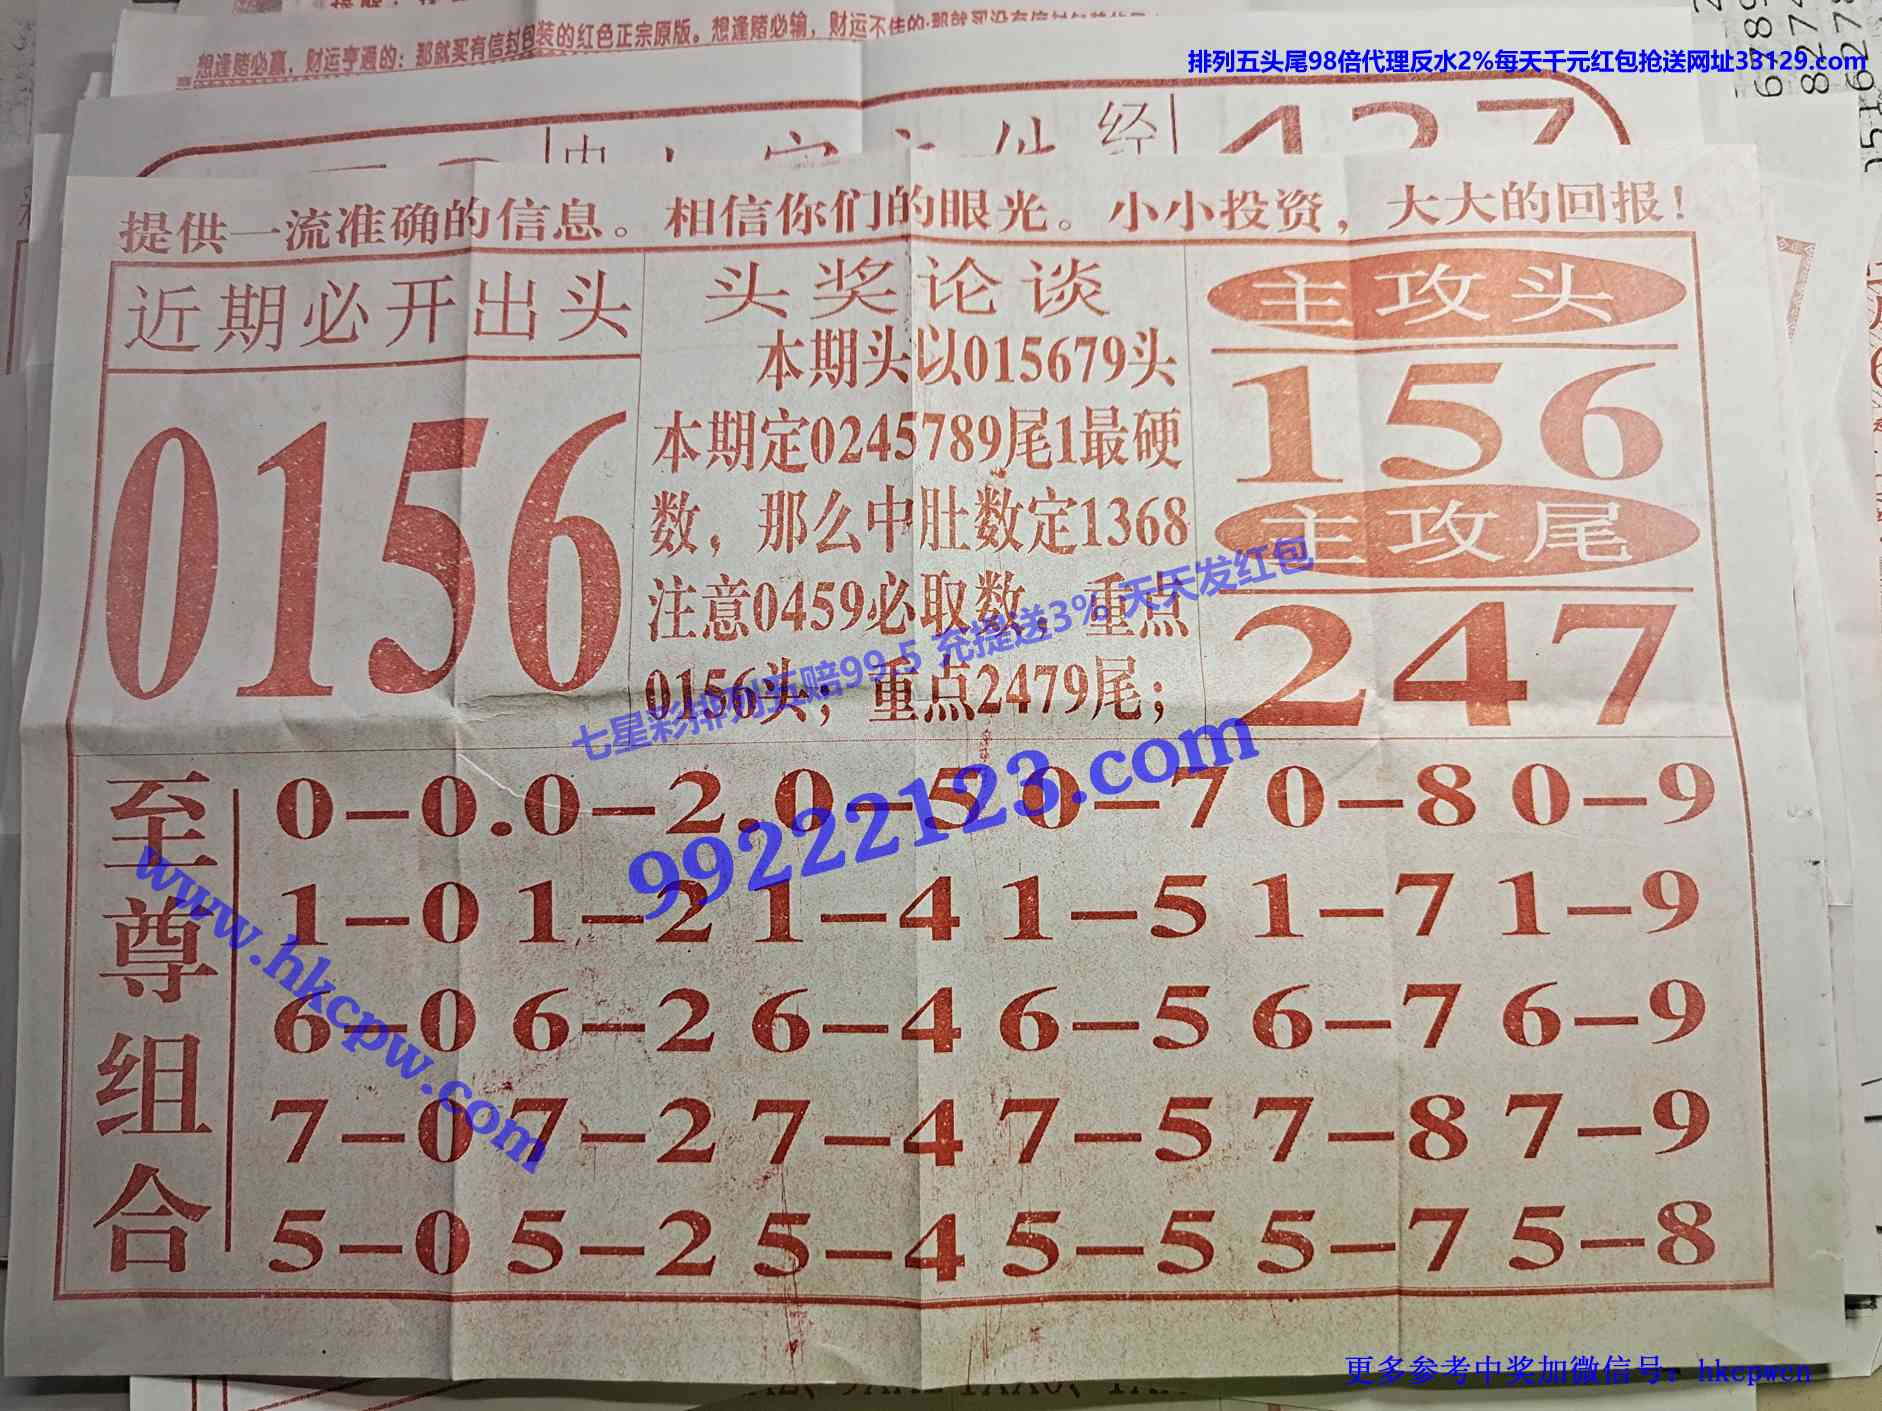 想逢赌必赢，财运亨通的：那就买有信封包装的红色正宗原版。想逢赌必输，财运不佳的:那就买没有信封包装的
排列五头尾98倍代理反水2%每天千元红包抢送网址33129.com
经
427
提供一流准确的信息。相信你们的眼光。小小投资，大大的回报！
近期必开出头
0156
头奖论谈
本期头以015679头
本期定0245789尾1最硬
数，那么中肚数定1368
注意0459必取数，重点
0156头；重点2479尾；
主攻头
156
主攻尾
247
七星彩排列五赔99.5 充提送3% 天天发红包
99222123.com
www.hkcpw.com
至尊组合
0-0.0-2.0-5 0-7 0-8 0-9
1-0 1-2 1-4 1-5 1-7 1-9
6-0 6-2 6-4 6-5 6-7 6-9
7-0 7-2 7-4 7-5 7-8 7-9
5-0 5-2 5-4 5-5 5-7 5-8
更多参考中奖加微信号：hkcpwcn